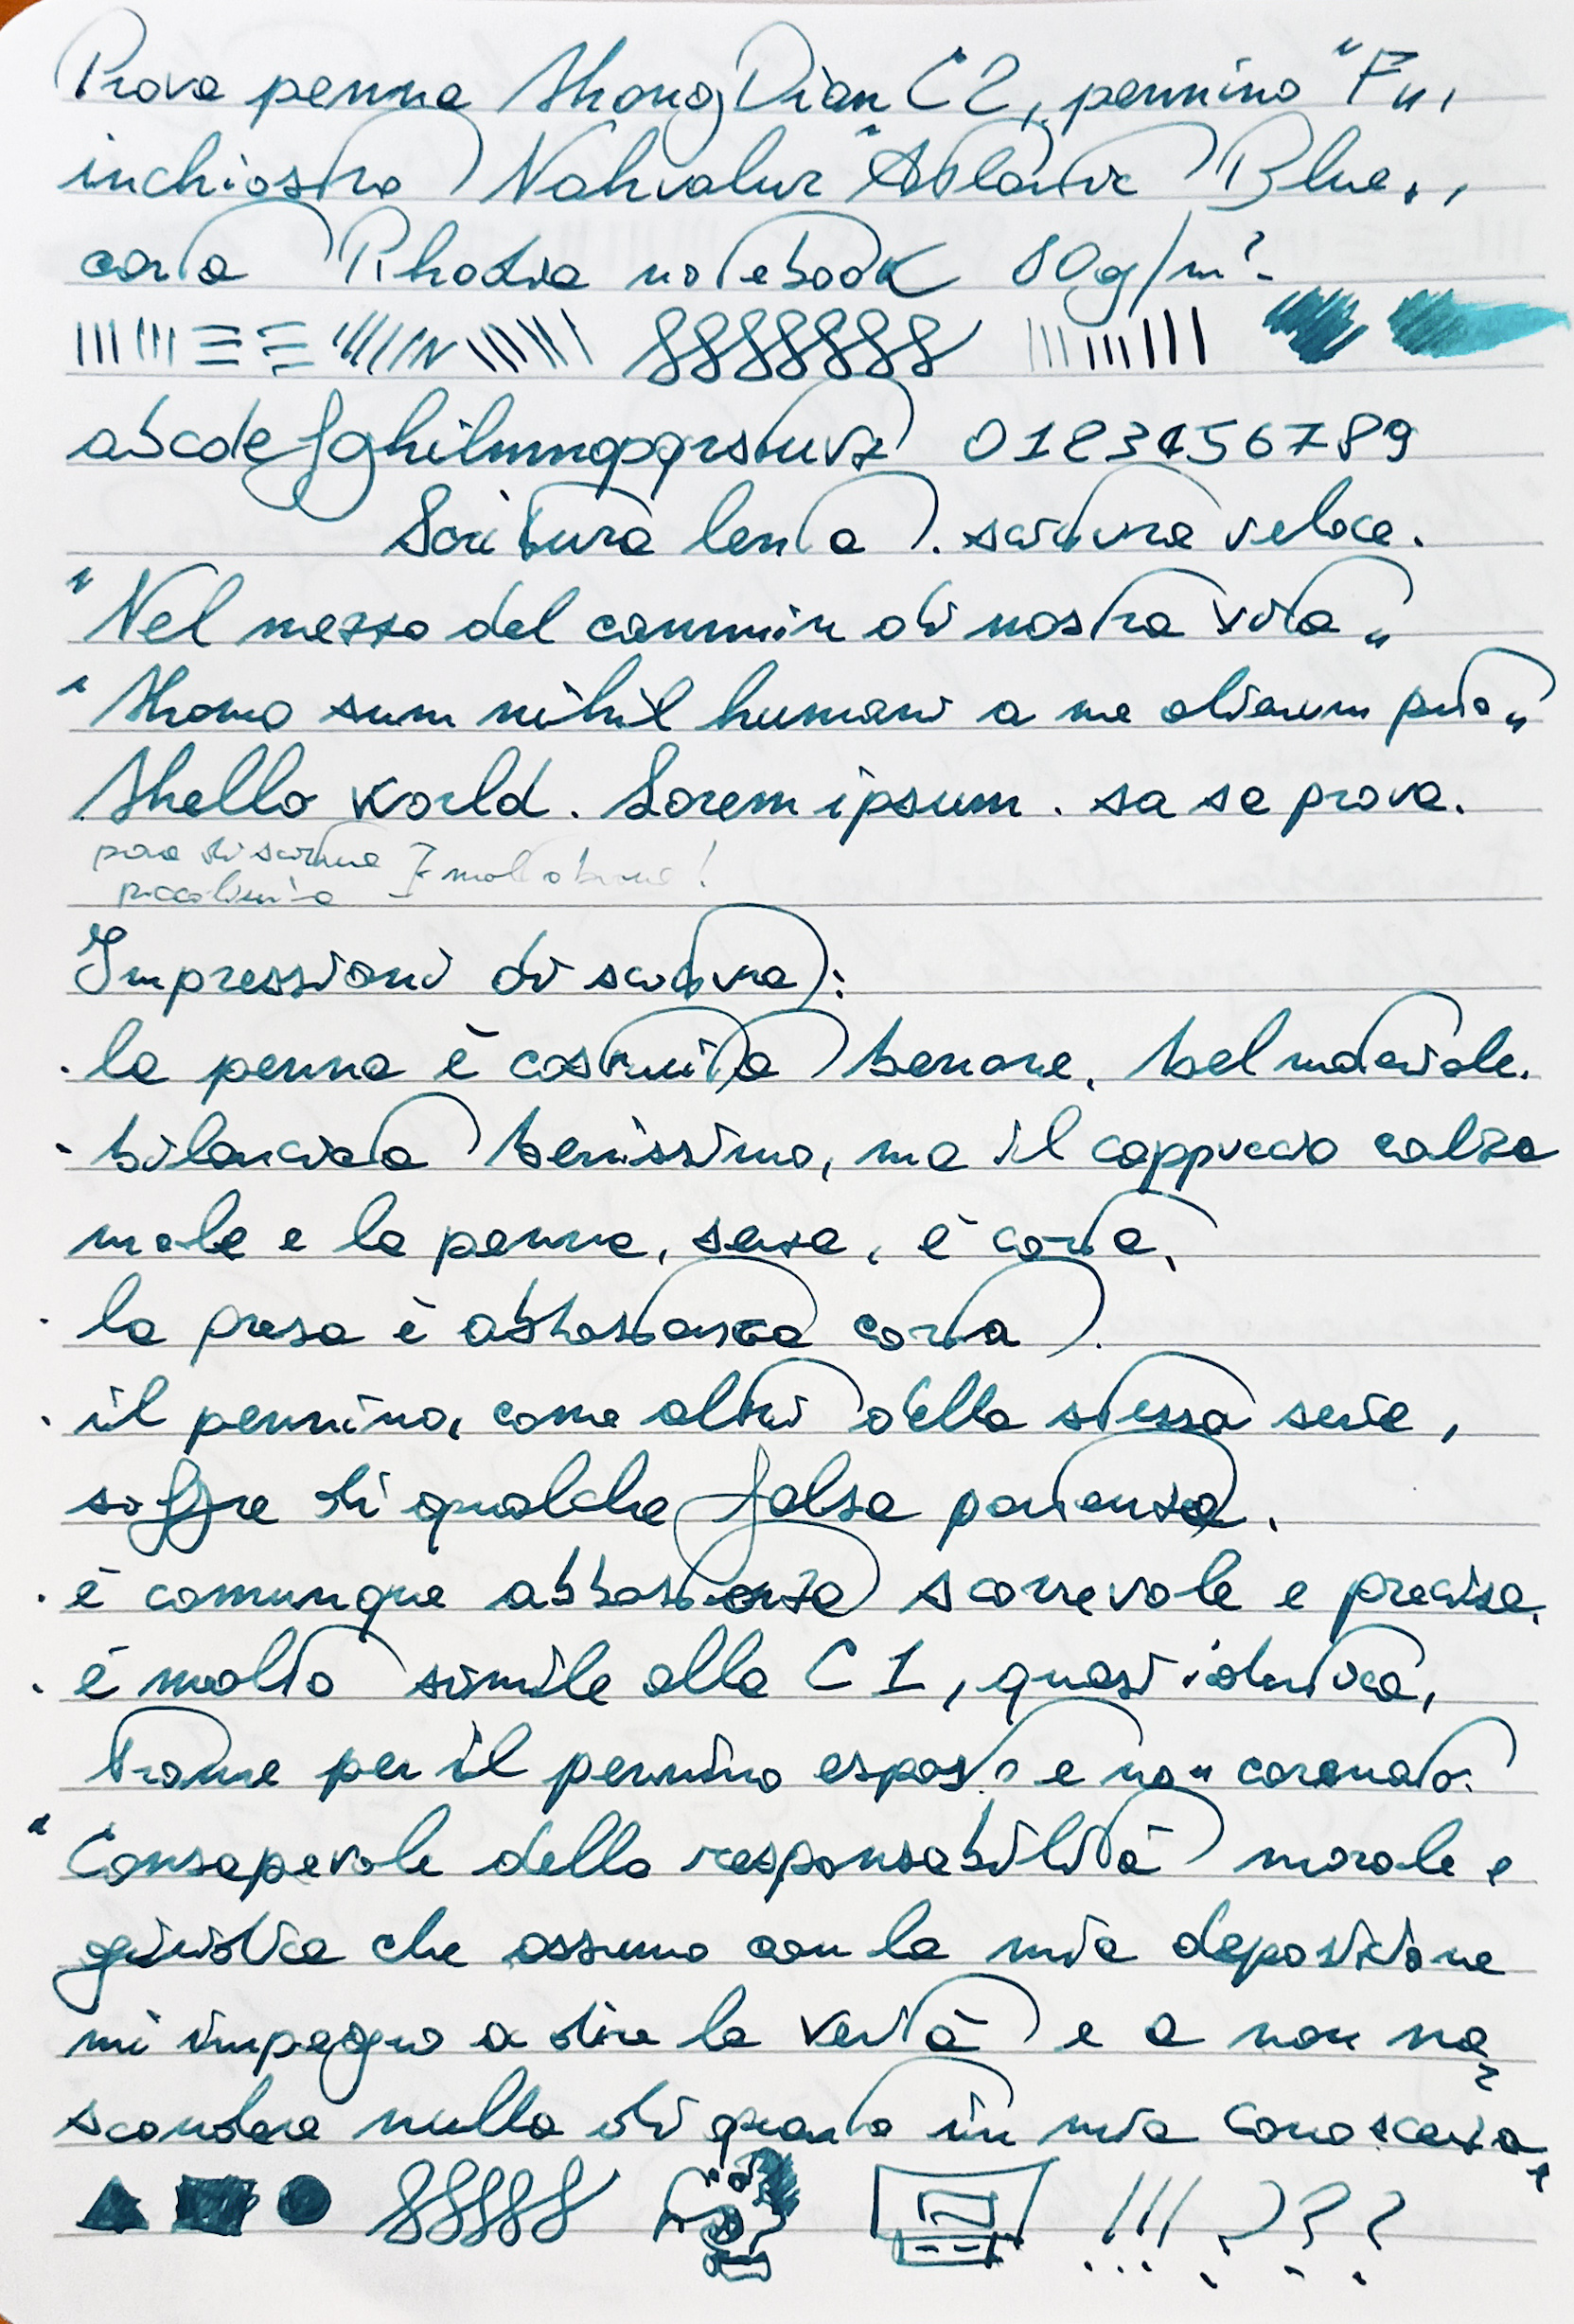 Prova penna HongDian C2, pennino "F",
inchiostro Nahvalur "Atlantic Blue",
carta Rhodia notebook 80g/m².
abcdefghilmnopqrstuvz 0123456789
Scrittura lenta. scrittura veloce.
"Nel mezzo del cammin di nostra vita"
"Homo sum nihil humani a me alienum puto"
Hello world. Lorem ipsum. sa sa prova.
piccolina molto bene!
Impressioni di scrittura:
· la penna è costruita benone, bel materiale.
· bilanciata benissimo, ma il cappuccio calza
male e la penna, senza, è corta,
· la presa è abbastanza corta.
· il pennino, come altri della stessa serie,
soffre di qualche falsa partenza.
· è comunque abbastanza scorrevole e precisa.
· è molto simile alla C1, quasi identica,
tranne per il pennino esposto e non carenato.
"Consapevole della responsabilità morale e
giuridica che assumo con la mia deposizione
mi impegno a dire la verità e a non na
scondere nulla di quanto in mia conoscenza"
!!! ???